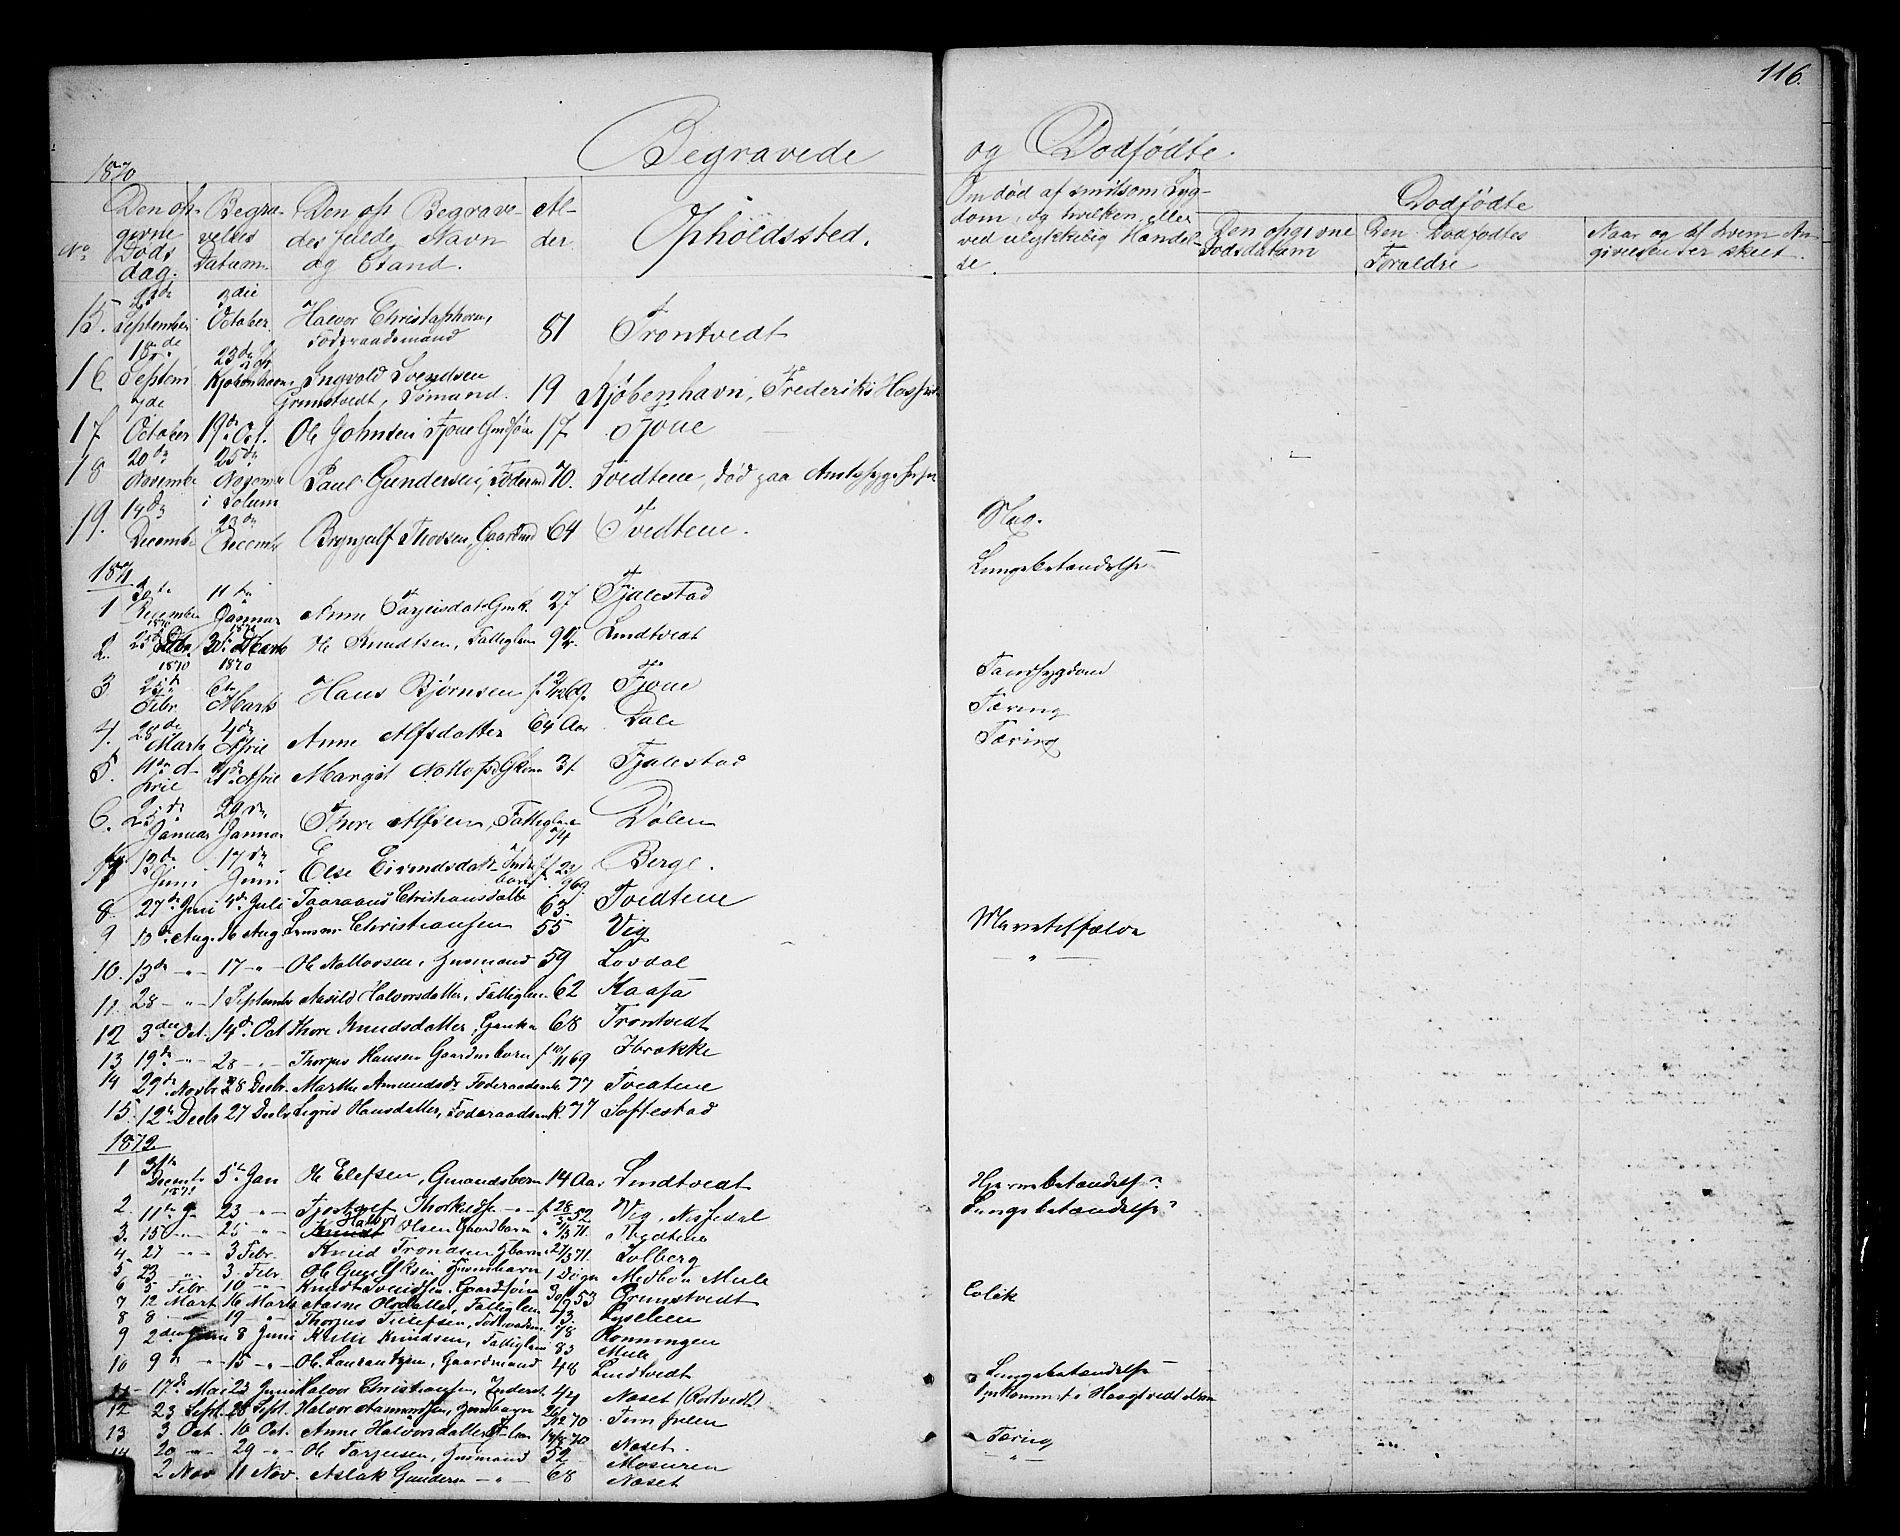 116.
1870
Begravede og Dødfødte.
No.
Den opgivne Döds dag.
Begravelses Datum
Den op Begravedes fulde Navn og Stand.
Alder
Opholdssted.
Om död af smitsom Sygdom, og hvilken, eller ved ulykkelig Hændelse.
Dødfødte
Den opgivne Dödsdatum
Den Dødfødtes Forældre
Naar og til hvem Angivelsen er skeet.
15. 23de September 3die October Halvor Christophersen, Föderaadsmand 81 Trontvedt
16 18de Septem Kjøbenhavn Ingvald Svendsen Grimstvedt, Sømand. 19 Kjøbenhavn, Frederiks Hospital
17 7de October 19de Oct. Ole Johnsen Fjone 17 Fjone
18 20de Novembr 25de Novembr i Solum Paul Gundersen, Födermd 70. Tvedtene, død paa Amtssygehuset
19. 14de Decembr 23de Decembr Brynjulf Thovsen, Gaardmd 64 Tvedtene. Slag.
1871
1 30te December 1870 11te Januar 1871 Anne Tarjeisdat Gmk. 27 Tjalestad Lungebetændelse
2. 25de Febr. 1870 3de Marts 1870 Ole Knudtsen, Fattiglem 92. Lindtvedt
3 25de Febr. 6te Marts Hans Bjørnsen f. 2/12 69. Fjone Tandsygdom
4. 28de Marts 4de April Anne Alfsdatter 64 Aar Dale Tæring
5. 11te April 21de April Margit Nottofsd Gkone 31. Tjalestad Tæring
6. 25de Januar 29de Januar Thore Alfsen, Fattiglem 74 Dölen
7 13de Juni 17de Juni Else Eivindsdatt. Inderstbarn f. 23/9 69. Berge.
8. 27de Juni 4de Juli Taaraand Christiansdatter 63. Tvedtene
9 10de Aug. 16 Aug Christiansen 55 Vig Mavetilfælde
10. 13de -"- 17 -"- Ole Nottovsen, Husmand 59 Lovdal -"-
11. 28 -"- 1 September Aasild Halvorsdatter, Fattiglem 62 Kaasa
12 3die Oct. 14de Oct Thore Knudsdatter, Gaardkn 68 Trontvedt
13 19de -"- 28 -"- Thorjus Hansen Gaardmbarn f. 10/11 69 Brække
14 29de Novbr 28 Decbr. Marthe Amundsdr Föderaadsenk. 77 Tveatene
15. 12te Decbr 27 Decbr Sigrid Hansdatter, Föderaadsenk. 77 Toftestad
1872
1 31te Decmbr 1871 5te Jan Ole Elefsen, Gmandsbarn 14 Aar Lindtvedt Hjernebetændelse
2. 11te Ja 23 -"- Tjostolf Thorkildse -"- f. 28/5 52 Vig, Nissedal Lungebetændelse
3. 15 -"- 25 -"- Halvor Olsen Gaardbarn 1/3 71. Tvedtene
4. 27 -"- 3 Febr. Knud Trondsen Gbarn 27/3 71. Solberg
5 23 " 3. Febr Ole Husmbarn 1 Døgn Medbøn Mule
6 5 Febr 10 -"- Knudt Svendsen. Gaardssön 30/10 53 Grimstvedt Colik
7 12 Mart 16 Marts Aasne Olsdatter, Fattiglem 73.
8 8 -"- 19 -"- Thorjus Tellefsen, Föderaadsm 78 Rönningen
9 2den Juni 8 Juni Kittil Knudsen, Fattiglem 83 Mule
10 9de -"- 15 -"- Ole Laurantzen, Gaardmand 48 Lindtvedt Lungebetændelse
11 17de Mai 23 Juni Halvor Christiansen, Inderst 44 Naset (Rostvedt)
12 23 Sept. 28 Sept. Halvor Aamundsen, Husmbarn 70
13 3 Oct. 10 Oct. Anne Halvorsdatter 70 Naset. Tæring
14 20 -"- 29 -"- Ole Tarjeisen, Husmand 52 Mosuren -"-
2 Nov 11 Nov. Aslak Gundersn -"- 68 Næset